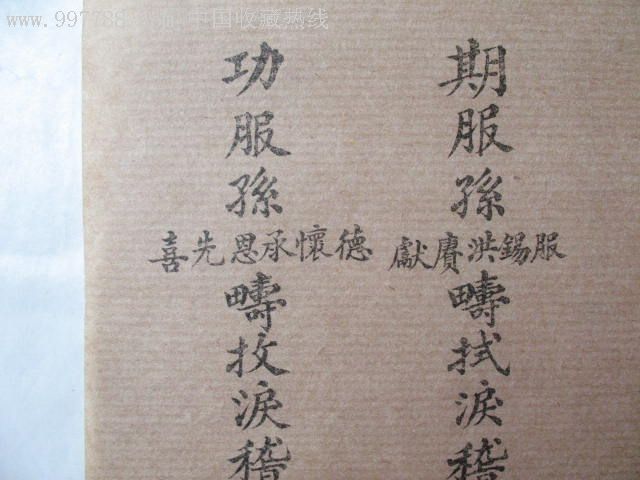 期服孫
服錫洪賡獻
疇拭淚稽
功服孫
德懷承恩先喜
疇抆淚稽
www.997788
中国收藏热线